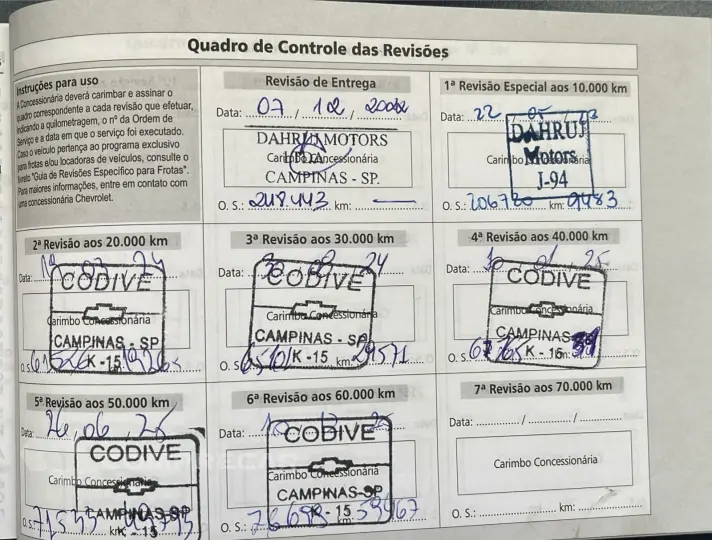 Quadro de Controle das Revisões
Instruções para uso
A Concessionária deverá carimbar e assinar o
quadro correspondente a cada revisão que efetuar,
indicando a quilometragem, o nº da Ordem de
Serviço e a data em que o serviço foi executado.
Caso o veículo pertença ao programa exclusivo
para frotas e/ou locadoras de veículos, consulte o
livreto "Guia de Revisões Específico para Frotas".
Para maiores informações, entre em contato com
uma concessionária Chevrolet.
Revisão de Entrega
Data: 07 / 12 /
DAHRUJ MOTORS
Carimbo Concessionária
CAMPINAS - SP.
O. S.: 248.443 km:
1ª Revisão Especial aos 10.000 km
Data: 22 / 05 / 23
DAHRUJ
Motors
Carimbo Concessionária
J-94
O. S.: 206720 km: 9483
2ª Revisão aos 20.000 km
Data:
CODIVE
Carimbo Concessionária
CAMPINAS - SP
O. S.: K - 15
3ª Revisão aos 30.000 km
Data: 30 24
CODIVE
Carimbo Concessionária
CAMPINAS - SP
O. S.: K - 15 km: 29571
4ª Revisão aos 40.000 km
Data: 25
CODIVE
Carimbo Concessionária
CAMPINAS
O. S.: K - 15 km:
5ª Revisão aos 50.000 km
Data: 26, 06, 25
CODIVE
Carimbo Concessionária
CAMPINAS-SP
K - 15
6ª Revisão aos 60.000 km
Data: 25
CODIVE
Carimbo Concessionária
CAMPINAS-SP
O. S.: K - 15 km: 59467
7ª Revisão aos 70.000 km
Data: / /
Carimbo Concessionária
O. S.: km: